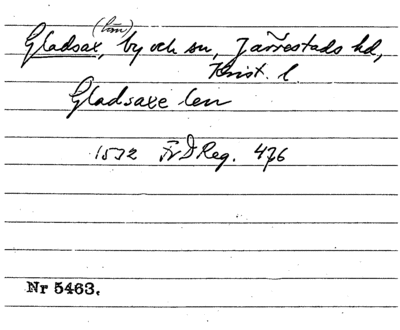 (län)
Gladsax, by och sn, Järrestads hd,
Krist. l
Gladsaxe len
1532 Fr I Reg. 476
Nr 5463.